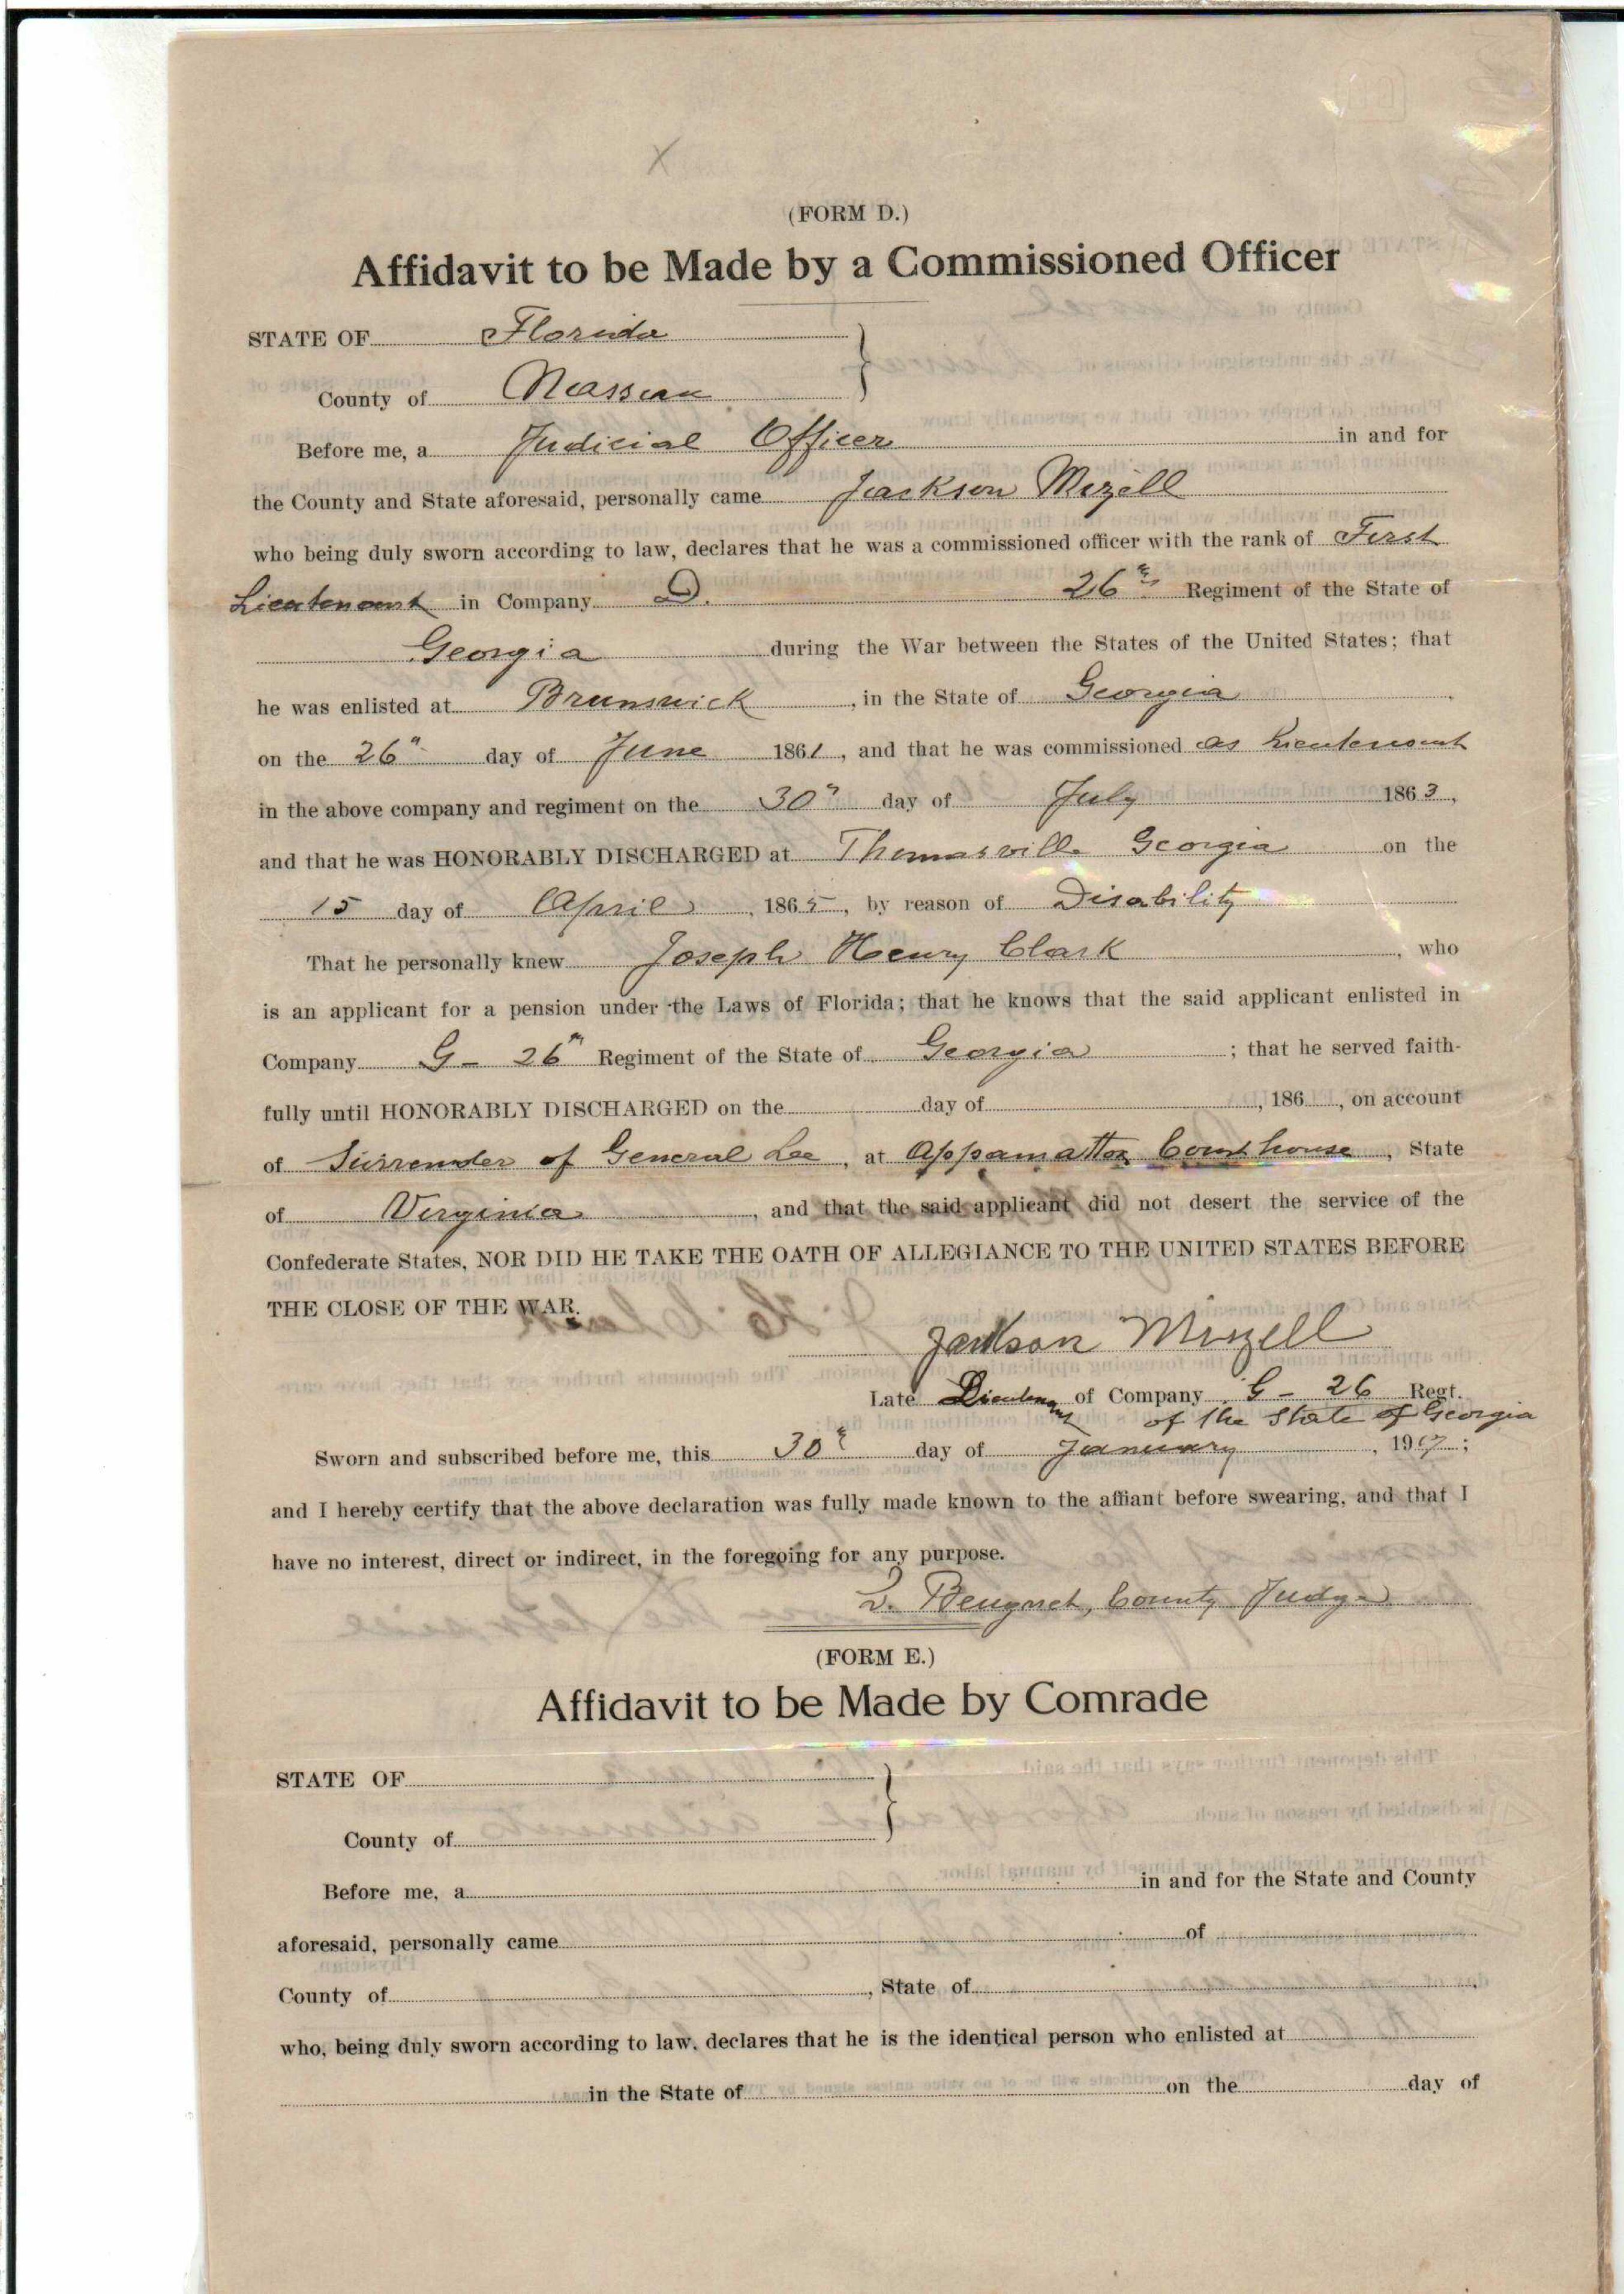 (FORM D.)
Affidavit to be Made by a Commissioned Officer
STATE OF Florida
County of Nassau
Before me, a Judicial Officer in and for
the County and State aforesaid, personally came Jackson Mizell
who being duly sworn according to law, declares that he was a commissioned officer with the rank of First
Lieutenant in Company D. 26" Regiment of the State of
Georgia during the War between the States of the United States; that
he was enlisted at Brunswick, in the State of Georgia
on the 26" day of June 1861, and that he was commissioned as Lieutenant
in the above company and regiment on the 30" day of July 1863,
and that he was HONORABLY DISCHARGED at Thomasville Georgia on the
15 day of April, 1865, by reason of Disability
That he personally knew Joseph Henry Clark, who
is an applicant for a pension under the Laws of Florida; that he knows that the said applicant enlisted in
Company G - 26" Regiment of the State of Georgia; that he served faith-
fully until HONORABLY DISCHARGED on the day of , 186 , on account
of Surrender of General Lee, at Appamattox Courthouse, State
of Virginia, and that the said applicant did not desert the service of the
Confederate States, NOR DID HE TAKE THE OATH OF ALLEGIANCE TO THE UNITED STATES BEFORE
THE CLOSE OF THE WAR.
Jackson Mizell
Late Lieutenant of Company G - 26 Regt.
of the State of Georgia
Sworn and subscribed before me, this 30" day of January, 19 ;
and I hereby certify that the above declaration was fully made known to the affiant before swearing, and that I
have no interest, direct or indirect, in the foregoing for any purpose.
County Judge
(FORM E.)
Affidavit to be Made by Comrade
STATE OF
County of
Before me, a in and for the State and County
aforesaid, personally came of
County of , State of
who, being duly sworn according to law, declares that he is the identical person who enlisted at
in the State of on the day of